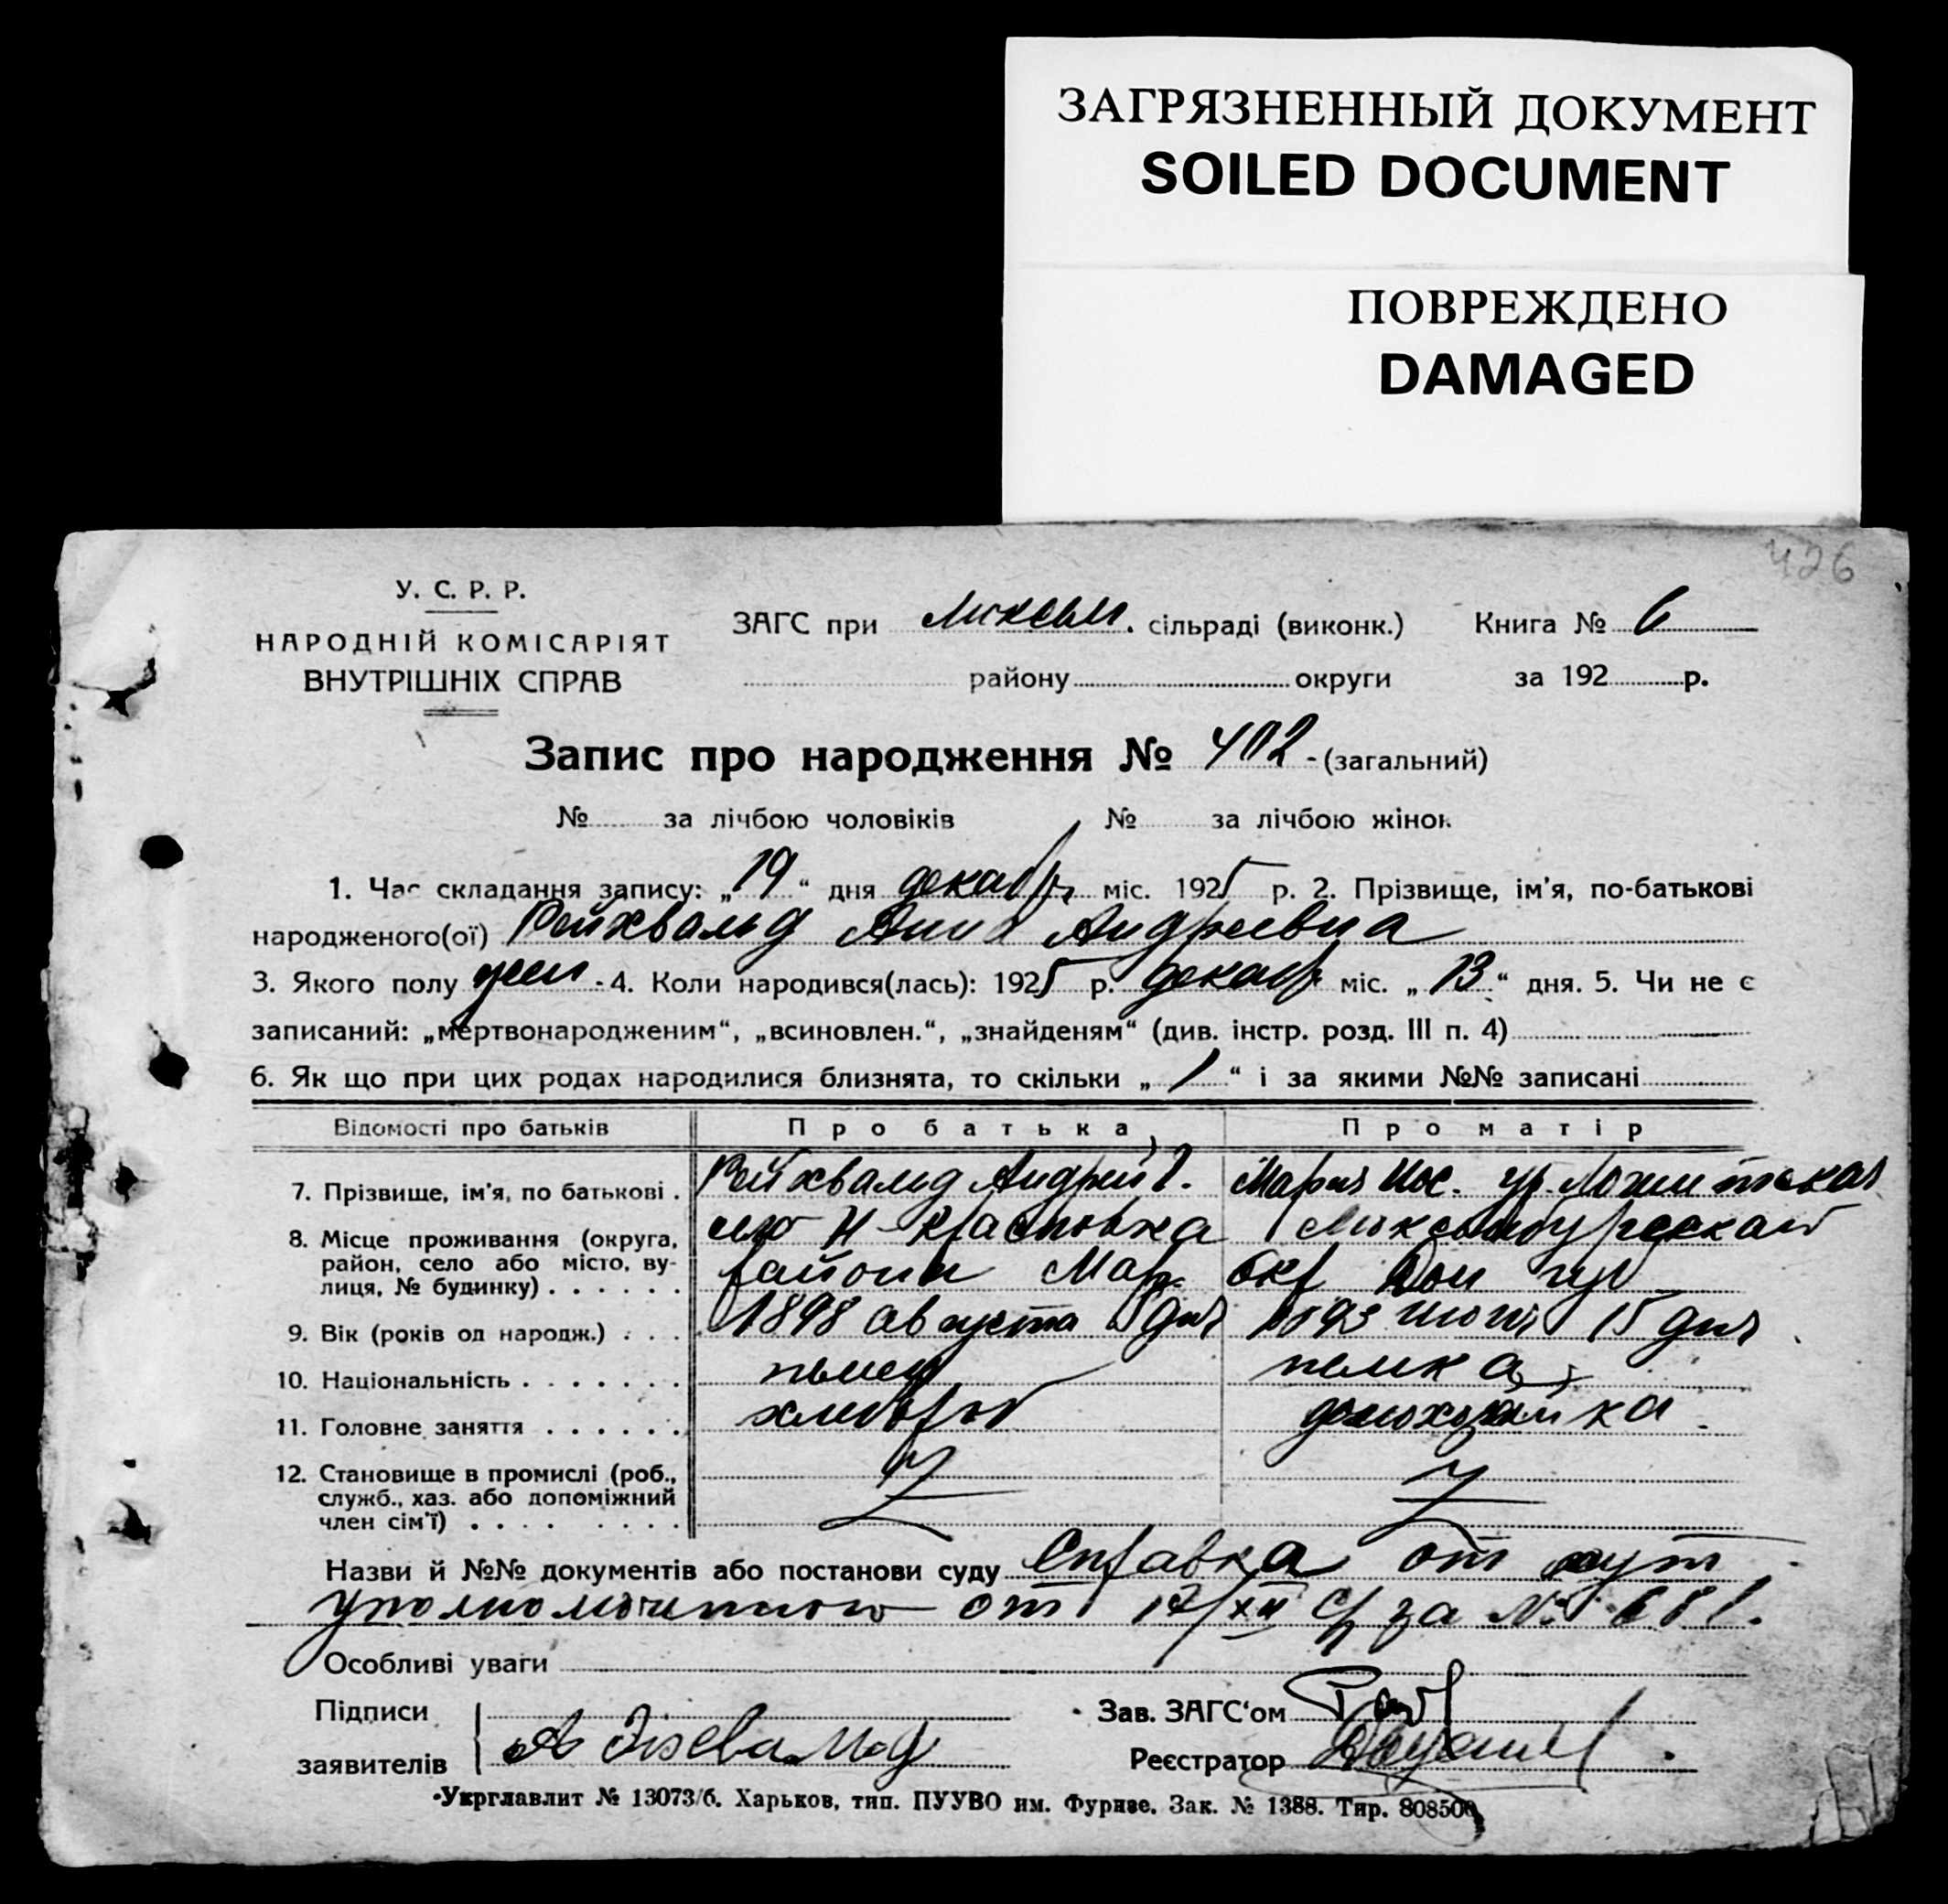 ЗАГРЯЗНЕННЫЙ ДОКУМЕНТ
SOILED DOCUMENT
ПОВРЕЖДЕНО
DAMAGED
426
У. С. Р. Р.
НАРОДНІЙ КОМІСАРІЯТ
ВНУТРІШНІХ СПРАВ
ЗАГС при Люксем. сільраді (виконк.) Книга № 6
району округи за 192 р.
Запис про народження № 402 - (загальний)
№ за лічбою чоловіків № за лічбою жінок
1. Час складання запису: „19“ дня декабр міс. 1925 р. 2. Прізвище, ім'я, по-батькові
народженого(ої) Рейхвальд Анна Андреевна
3. Якого полу жен. 4. Коли народився(лась): 1925 р. декабр міс. „13“ дня. 5. Чи не є
записаний: „мертвонародженим“, „всиновлен.“, „знайденям“ (див. інстр. розд. III п. 4)
6. Як що при цих родах народилися близнята, то скільки „1“ і за якими №№ записані
Відомості про батьків Про батька Про матір
7. Прізвище, ім'я, по батькові . Рейхвальд Андрей Мария Иос. ур.
8. Місце проживання (округа, село Н-Красновка Люксембургской
район, село або місто, ву- района Мар. окр Дон губ
лиця, № будинку) . . . . . .
9. Вік (років од народж.) . . . 1898 августа дня 1893 15 дня
10. Національність . . . . . . . немец немка
11. Головне заняття . . . . . . хлебороб домохозяйка
12. Становище в промислі (роб.,
служб., хаз. або допоміжний
член сім'ї) . . . . . . . .
Назви й №№ документів або постанови суду Справка от хут
уполномоченного от 17/XII с/г за № 681.
Особливі уваги
Підписи Зав. ЗАГС'ом
заявителів Реєстратор
Укрглавлит № 13073/б. Харьков, тип. ПУУВО им. Фрунзе. Зак. № 1388. Тир. 808500